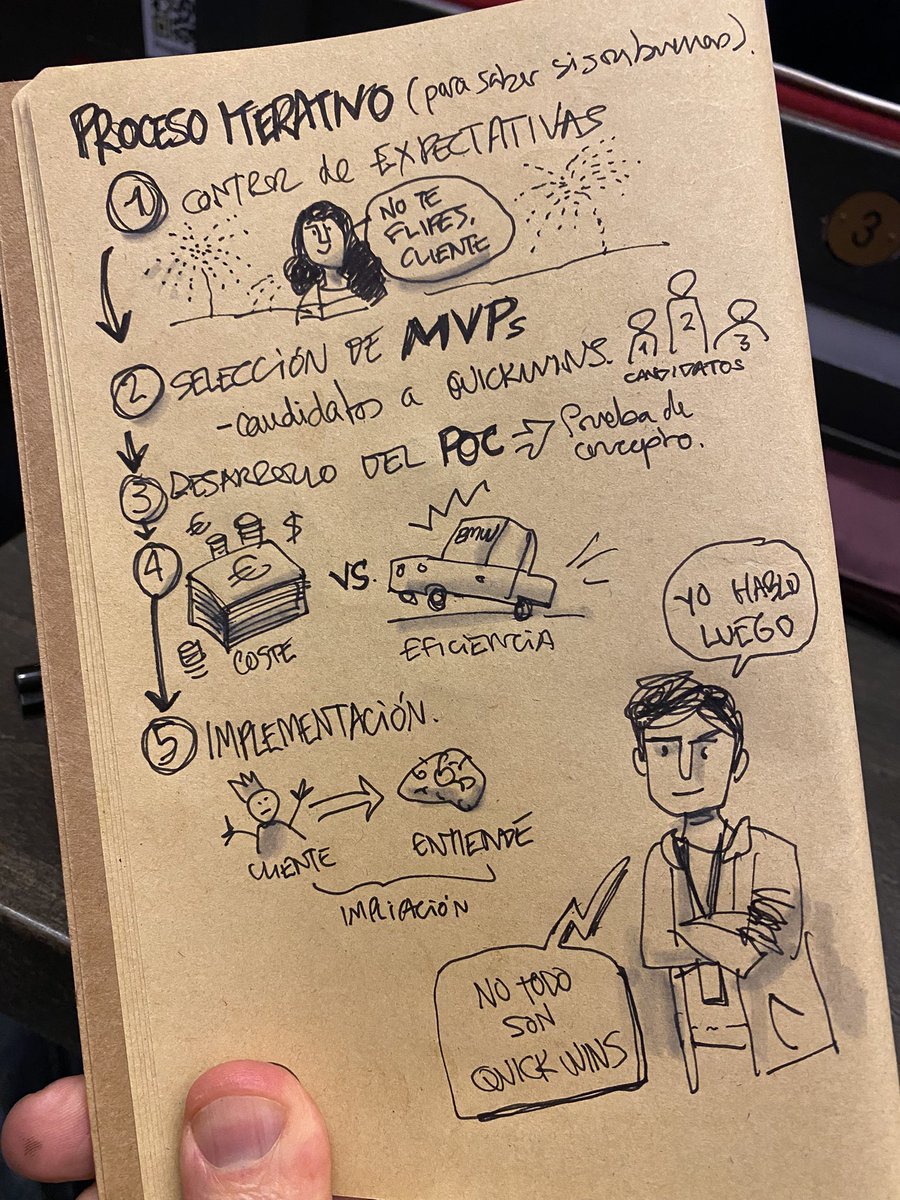 PROCESO ITERATIVO (para saber si son buenas).
1 CONTROL de EXPECTATIVAS
NO TE
FLIPES,
CLIENTE
2 SELECCIÓN DE MVPs
- candidatos a QUICKWINS.
1 2 3
CANDIDATOS
3 DESARROLLO DEL POC ⇒ Prueba de
concepto.
4
€ $
€
COSTE
VS.
BMW
EFICIENCIA
YO HABLO
LUEGO
5 IMPLEMENTACIÓN.
CLIENTE
ENTIENDE
IMPLICACIÓN
NO TODO
SON
QUICK WINS
3